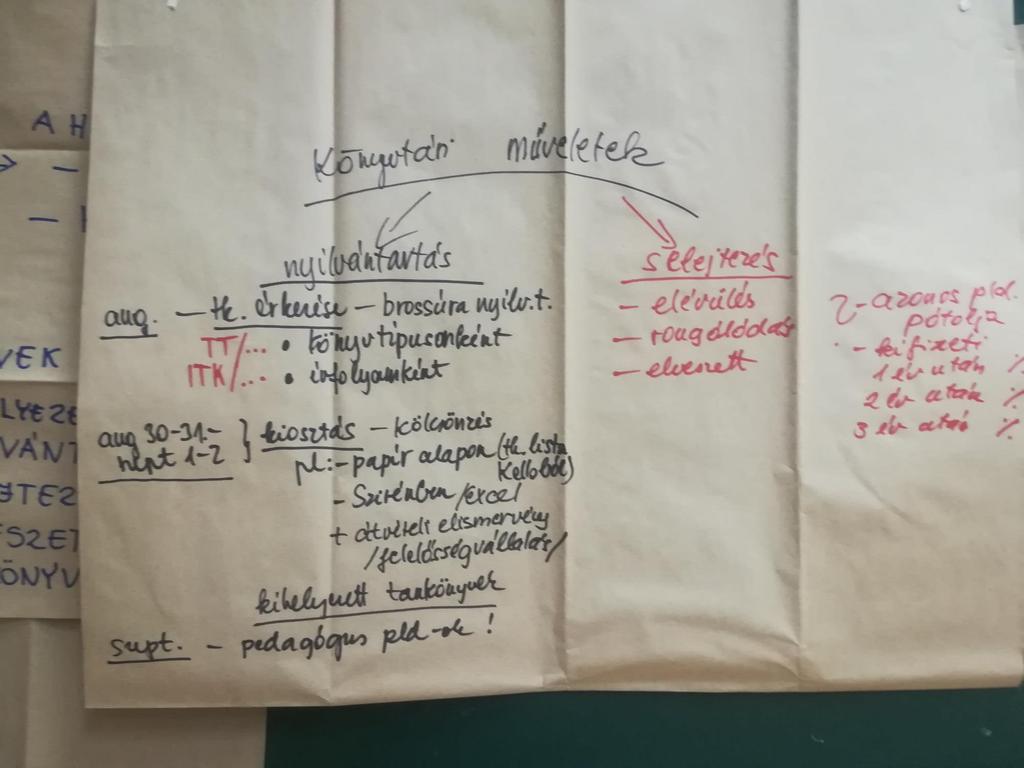 Könyvtári műveletek
nyilvántartás
aug. — tk. érkezése — brossúra nyilv.t.
TT/... • könyvtípusonként
ITK/... • évfolyamként
aug 30-31.-
szept 1-2 } kiosztás — kölcsönzés
pl:- papír alapon (tk. lista
Kellotól)
- Szirénben/excel
+ átvételi elismervény
/felelősségvállalás/
kihelyezett tankönyvek
szept. - pedagógus pld-ok !
selejtezés
— elévülés
— rongálódás
— elveszett
- azonos pld.
pótolja
- kifizeti
1 év után %
2 év után %
3 év után %
A H
VEK
LYEZE
VÁNT
TEZ
SZET
ÖNYV